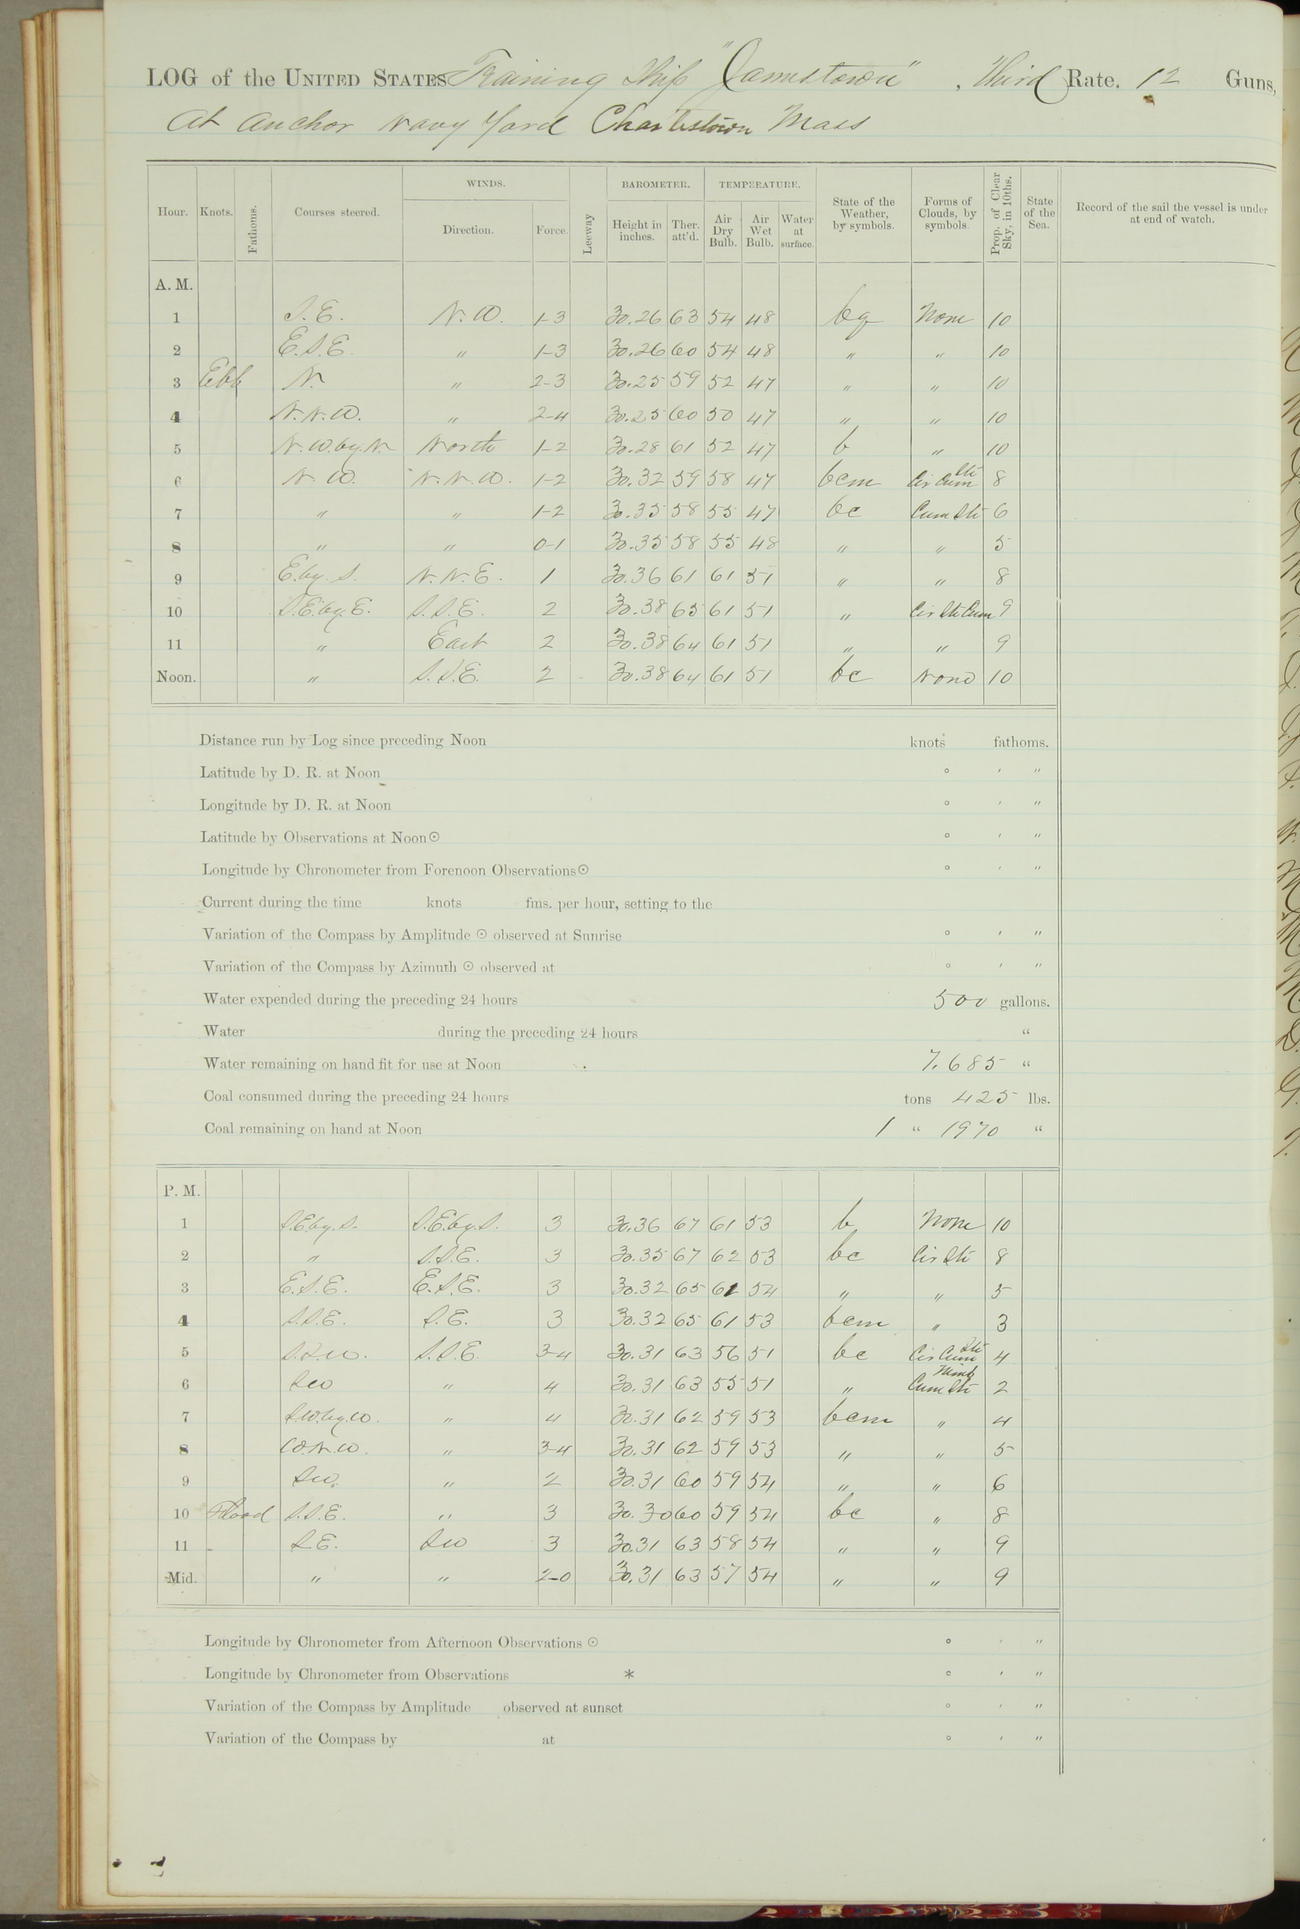 LOG of the UNITED STATES Training Ship "Jamestown", Third Rate. 12 Guns,
At Anchor Navy Yard Charlestown Mass
Hour. Knots. Fathoms. Courses steered. WINDS. Direction. Force. Leeway BAROMETER. Height in inches. Ther. att'd. TEMPERATURE. Air Dry Bulb. Air Wet Bulb. Water at surface. State of the Weather, by symbols. Forms of Clouds, by symbols. Prop. of Clear Sky, in 10ths. State of the Sea. Record of the sail the vessel is under at end of watch.
A. M.
1 S.E. N.W. 1-3 30.26 63 54 48 bg None 10
2 E.S.E. " 1-3 30.26 60 54 48 " " 10
3 Ebb N " 2-3 30.25 59 52 47 " " 10
4 N.N.W. " 2-4 30.25 60 50 47 " " 10
5 N.W.by.N. North 1-2 30.28 61 52 47 b " 10
6 N.W. N.N.W. 1-2 30.32 59 58 47 bcm Cir Cum Sti 8
7 " " 1-2 30.35 58 55 47 bc Cum Sti 6
8 " " 0-1 30.35 58 55 48 " " 5
9 E.by.S. N.N.E. 1 30.36 61 61 51 " " 8
10 S.E.by.E. S.S.E. 2 30.38 65 61 51 " Cir Sti Cum 9
11 " East 2 30.38 64 61 51 " " 9
Noon. " S.S.E. 2 30.38 64 61 51 bc None 10
Distance run by Log since preceding Noon knots fathoms.
Latitude by D. R. at Noon ° ' "
Longitude by D. R. at Noon ° ' "
Latitude by Observations at Noon ☉ ° ' "
Longitude by Chronometer from Forenoon Observations ☉ ° ' "
Current during the time knots fms. per hour, setting to the
Variation of the Compass by Amplitude ☉ observed at Sunrise ° ' "
Variation of the Compass by Azimuth ☉ observed at ° ' "
Water expended during the preceding 24 hours 500 gallons.
Water during the preceding 24 hours "
Water remaining on hand fit for use at Noon 7.685 "
Coal consumed during the preceding 24 hours tons 425 lbs.
Coal remaining on hand at Noon 1 " 1970 "
P. M.
1 S.E.by.S. S.E.by.S. 3 30.36 67 61 53 b None 10
2 " S.S.E. 3 30.35 67 62 53 bc Cir Sti 8
3 E.S.E. E.S.E. 3 30.32 65 61 54 " " 5
4 S.S.E. S.E. 3 30.32 65 61 53 bcm " 3
5 S.S.W. S.S.E. 3-4 30.31 63 56 51 bc Cir Cum Sti 4
6 SW " 4 30.31 63 55 51 " Cum Sti Nimb 2
7 S.W.by.W. " 4 30.31 62 59 53 bcm " 4
8 W.N.W. " 3-4 30.31 62 59 53 " " 5
9 SW. " 2 30.31 60 59 54 " " 6
10 Flood S.S.E. " 3 30.30 60 59 54 bc " 8
11 S.E. SW 3 30.31 63 58 54 " " 9
Mid. " " 2-0 30.31 63 57 54 " " 9
Longitude by Chronometer from Afternoon Observations ☉ ° ' "
Longitude by Chronometer from Observations * ° ' "
Variation of the Compass by Amplitude observed at sunset ° ' "
Variation of the Compass by at ° ' "